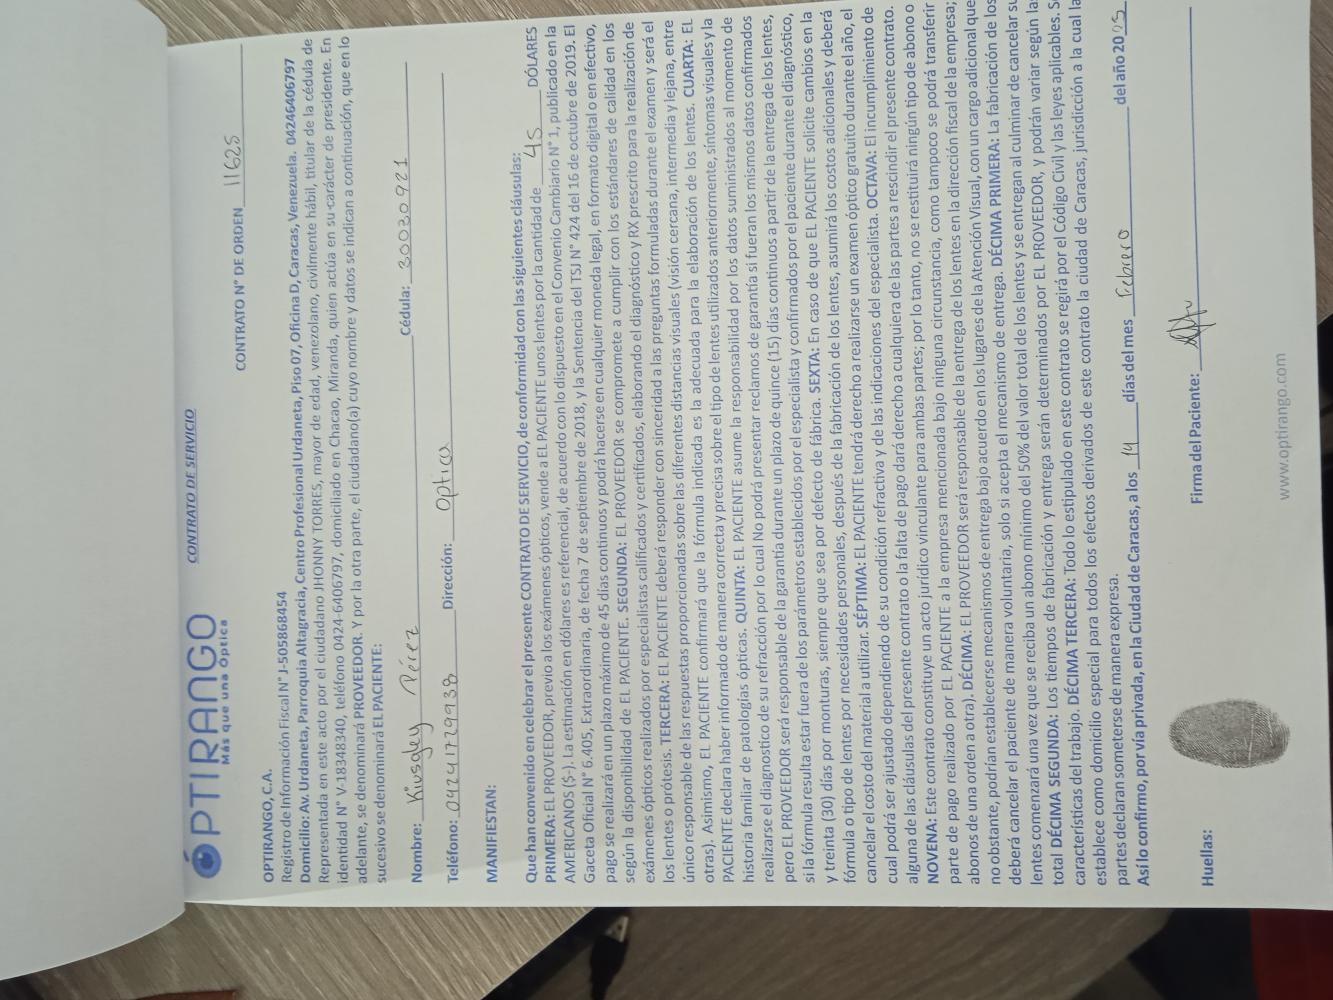 OPTIRANGO
Más que una Óptica
CONTRATO DE SERVICIO
CONTRATO N° DE ORDEN 11625
OPTIRANGO, C.A.
Registro de Información Fiscal N° J-505868454
Domicilio: Av. Urdaneta, Parroquia Altagracia, Centro Profesional Urdaneta, Piso 07, Oficina D, Caracas, Venezuela. 04246406797
Representada en este acto por el ciudadano JHONNY TORRES, mayor de edad, venezolano, civilmente hábil, titular de la cédula de
identidad N° V-18348340, teléfono 0424-6406797, domiciliado en Chacao, Miranda, quien actúa en su carácter de presidente. En
adelante, se denominará PROVEEDOR. Y por la otra parte, el ciudadano(a) cuyo nombre y datos se indican a continuación, que en lo
sucesivo se denominará EL PACIENTE:
Nombre: Kiusdey Pérez Cédula: 30030921
Teléfono: 04241729938 Dirección: Optica
MANIFIESTAN:
Que han convenido en celebrar el presente CONTRATO DE SERVICIO, de conformidad con las siguientes cláusulas:
PRIMERA: EL PROVEEDOR, previo a los exámenes ópticos, vende a EL PACIENTE unos lentes por la cantidad de 45 DÓLARES
AMERICANOS ($-). La estimación en dólares es referencial, de acuerdo con lo dispuesto en el Convenio Cambiario N° 1, publicado en la
Gaceta Oficial N° 6.405, Extraordinaria, de fecha 7 de septiembre de 2018, y la Sentencia del TSJ N° 424 del 16 de octubre de 2019. El
pago se realizará en un plazo máximo de 45 días continuos y podrá hacerse en cualquier moneda legal, en formato digital o en efectivo,
según la disponibilidad de EL PACIENTE. SEGUNDA: EL PROVEEDOR se compromete a cumplir con los estándares de calidad en los
exámenes ópticos realizados por especialistas calificados y certificados, elaborando el diagnóstico y RX prescrito para la realización de
los lentes o prótesis. TERCERA: EL PACIENTE deberá responder con sinceridad a las preguntas formuladas durante el examen y será el
único responsable de las respuestas proporcionadas sobre las diferentes distancias visuales (visión cercana, intermedia y lejana, entre
otras). Asimismo, EL PACIENTE confirmará que la fórmula indicada es la adecuada para la elaboración de los lentes. CUARTA: EL
PACIENTE declara haber informado de manera correcta y precisa sobre el tipo de lentes utilizados anteriormente, síntomas visuales y la
historia familiar de patologías ópticas. QUINTA: EL PACIENTE asume la responsabilidad por los datos suministrados al momento de
realizarse el diagnostico de su refracción por lo cual No podrá presentar reclamos de garantía si fueran los mismos datos confirmados
pero EL PROVEEDOR será responsable de la garantía durante un plazo de quince (15) días continuos a partir de la entrega de los lentes,
si la fórmula resulta estar fuera de los parámetros establecidos por el especialista y confirmados por el paciente durante el diagnóstico,
y treinta (30) días por monturas, siempre que sea por defecto de fábrica. SEXTA: En caso de que EL PACIENTE solicite cambios en la
fórmula o tipo de lentes por necesidades personales, después de la fabricación de los lentes, asumirá los costos adicionales y deberá
cancelar el costo del material a utilizar. SÉPTIMA: EL PACIENTE tendrá derecho a realizarse un examen óptico gratuito durante el año, el
cual podrá ser ajustado dependiendo de su condición refractiva y de las indicaciones del especialista. OCTAVA: El incumplimiento de
alguna de las cláusulas del presente contrato o la falta de pago dará derecho a cualquiera de las partes a rescindir el presente contrato.
NOVENA: Este contrato constituye un acto jurídico vinculante para ambas partes; por lo tanto, no se restituirá ningún tipo de abono o
parte de pago realizado por EL PACIENTE a la empresa mencionada bajo ninguna circunstancia, como tampoco se podrá transferir
abonos de una orden a otra). DÉCIMA: EL PROVEEDOR será responsable de la entrega de los lentes en la dirección fiscal de la empresa;
no obstante, podrían establecerse mecanismos de entrega bajo acuerdo en los lugares de la Atención Visual, con un cargo adicional que
deberá cancelar el paciente de manera voluntaria, solo si acepta el mecanismo de entrega. DÉCIMA PRIMERA: La fabricación de los
lentes comenzará una vez que se reciba un abono mínimo del 50% del valor total de los lentes y se entregan al culminar de cancelar su
total DÉCIMA SEGUNDA: Los tiempos de fabricación y entrega serán determinados por EL PROVEEDOR, y podrán variar según las
características del trabajo. DÉCIMA TERCERA: Todo lo estipulado en este contrato se regirá por el Código Civil y las leyes aplicables. Se
establece como domicilio especial para todos los efectos derivados de este contrato la ciudad de Caracas, jurisdicción a la cual la
partes declaran someterse de manera expresa.
Así lo confirmo, por vía privada, en la Ciudad de Caracas, a los 14 días del mes Febrero del año 2025
Huellas: Firma del Paciente:
www.optirango.com